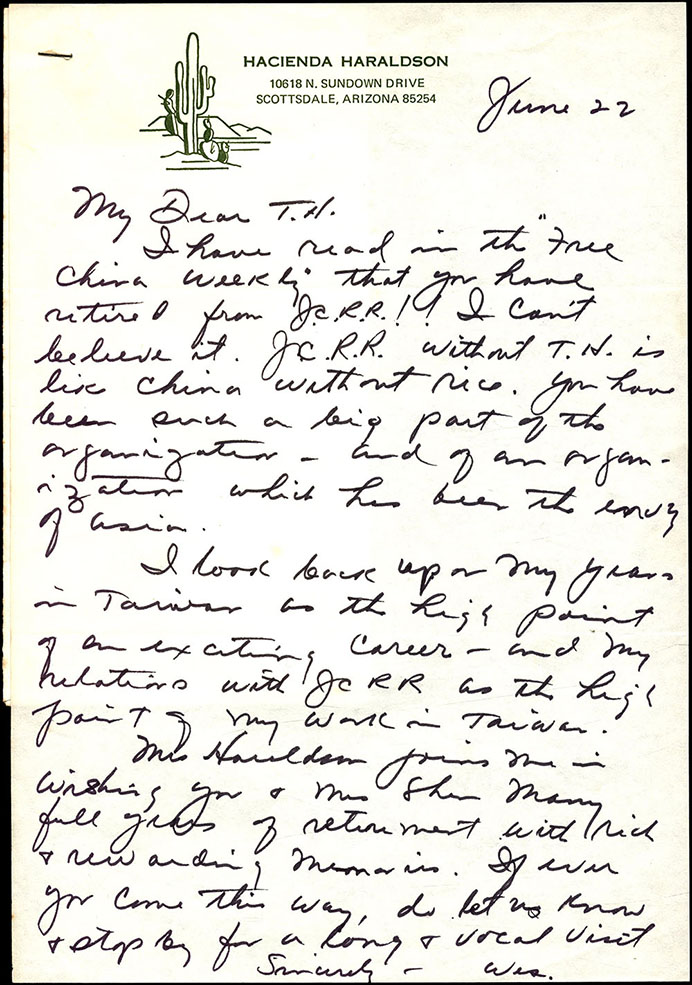 HACIENDA HARALDSON
10618 N. SUNDOWN DRIVE
SCOTTSDALE, ARIZONA 85254
June 22
My Dear T.H.
I have read in the "Free
China Weekly" that you have
retired from J.C.R.R.!! I can't
believe it. J.C.R.R. without T.H. is
like China without rice. You have
been such a big part of the
organization – and of an organ-
ization which has been the envy
of Asia.
I look back upon my years
in Taiwan as the high point
of an exciting career – and my
relations with JCRR as the high
point of my work in Taiwan.
Mrs Haraldson joins me in
wishing you & Mrs Shen many
full years of retirement with rich
& rewarding memories. If ever
you come this way, do let us know
& stop by for a long & vocal visit
Sincerely – Wes.